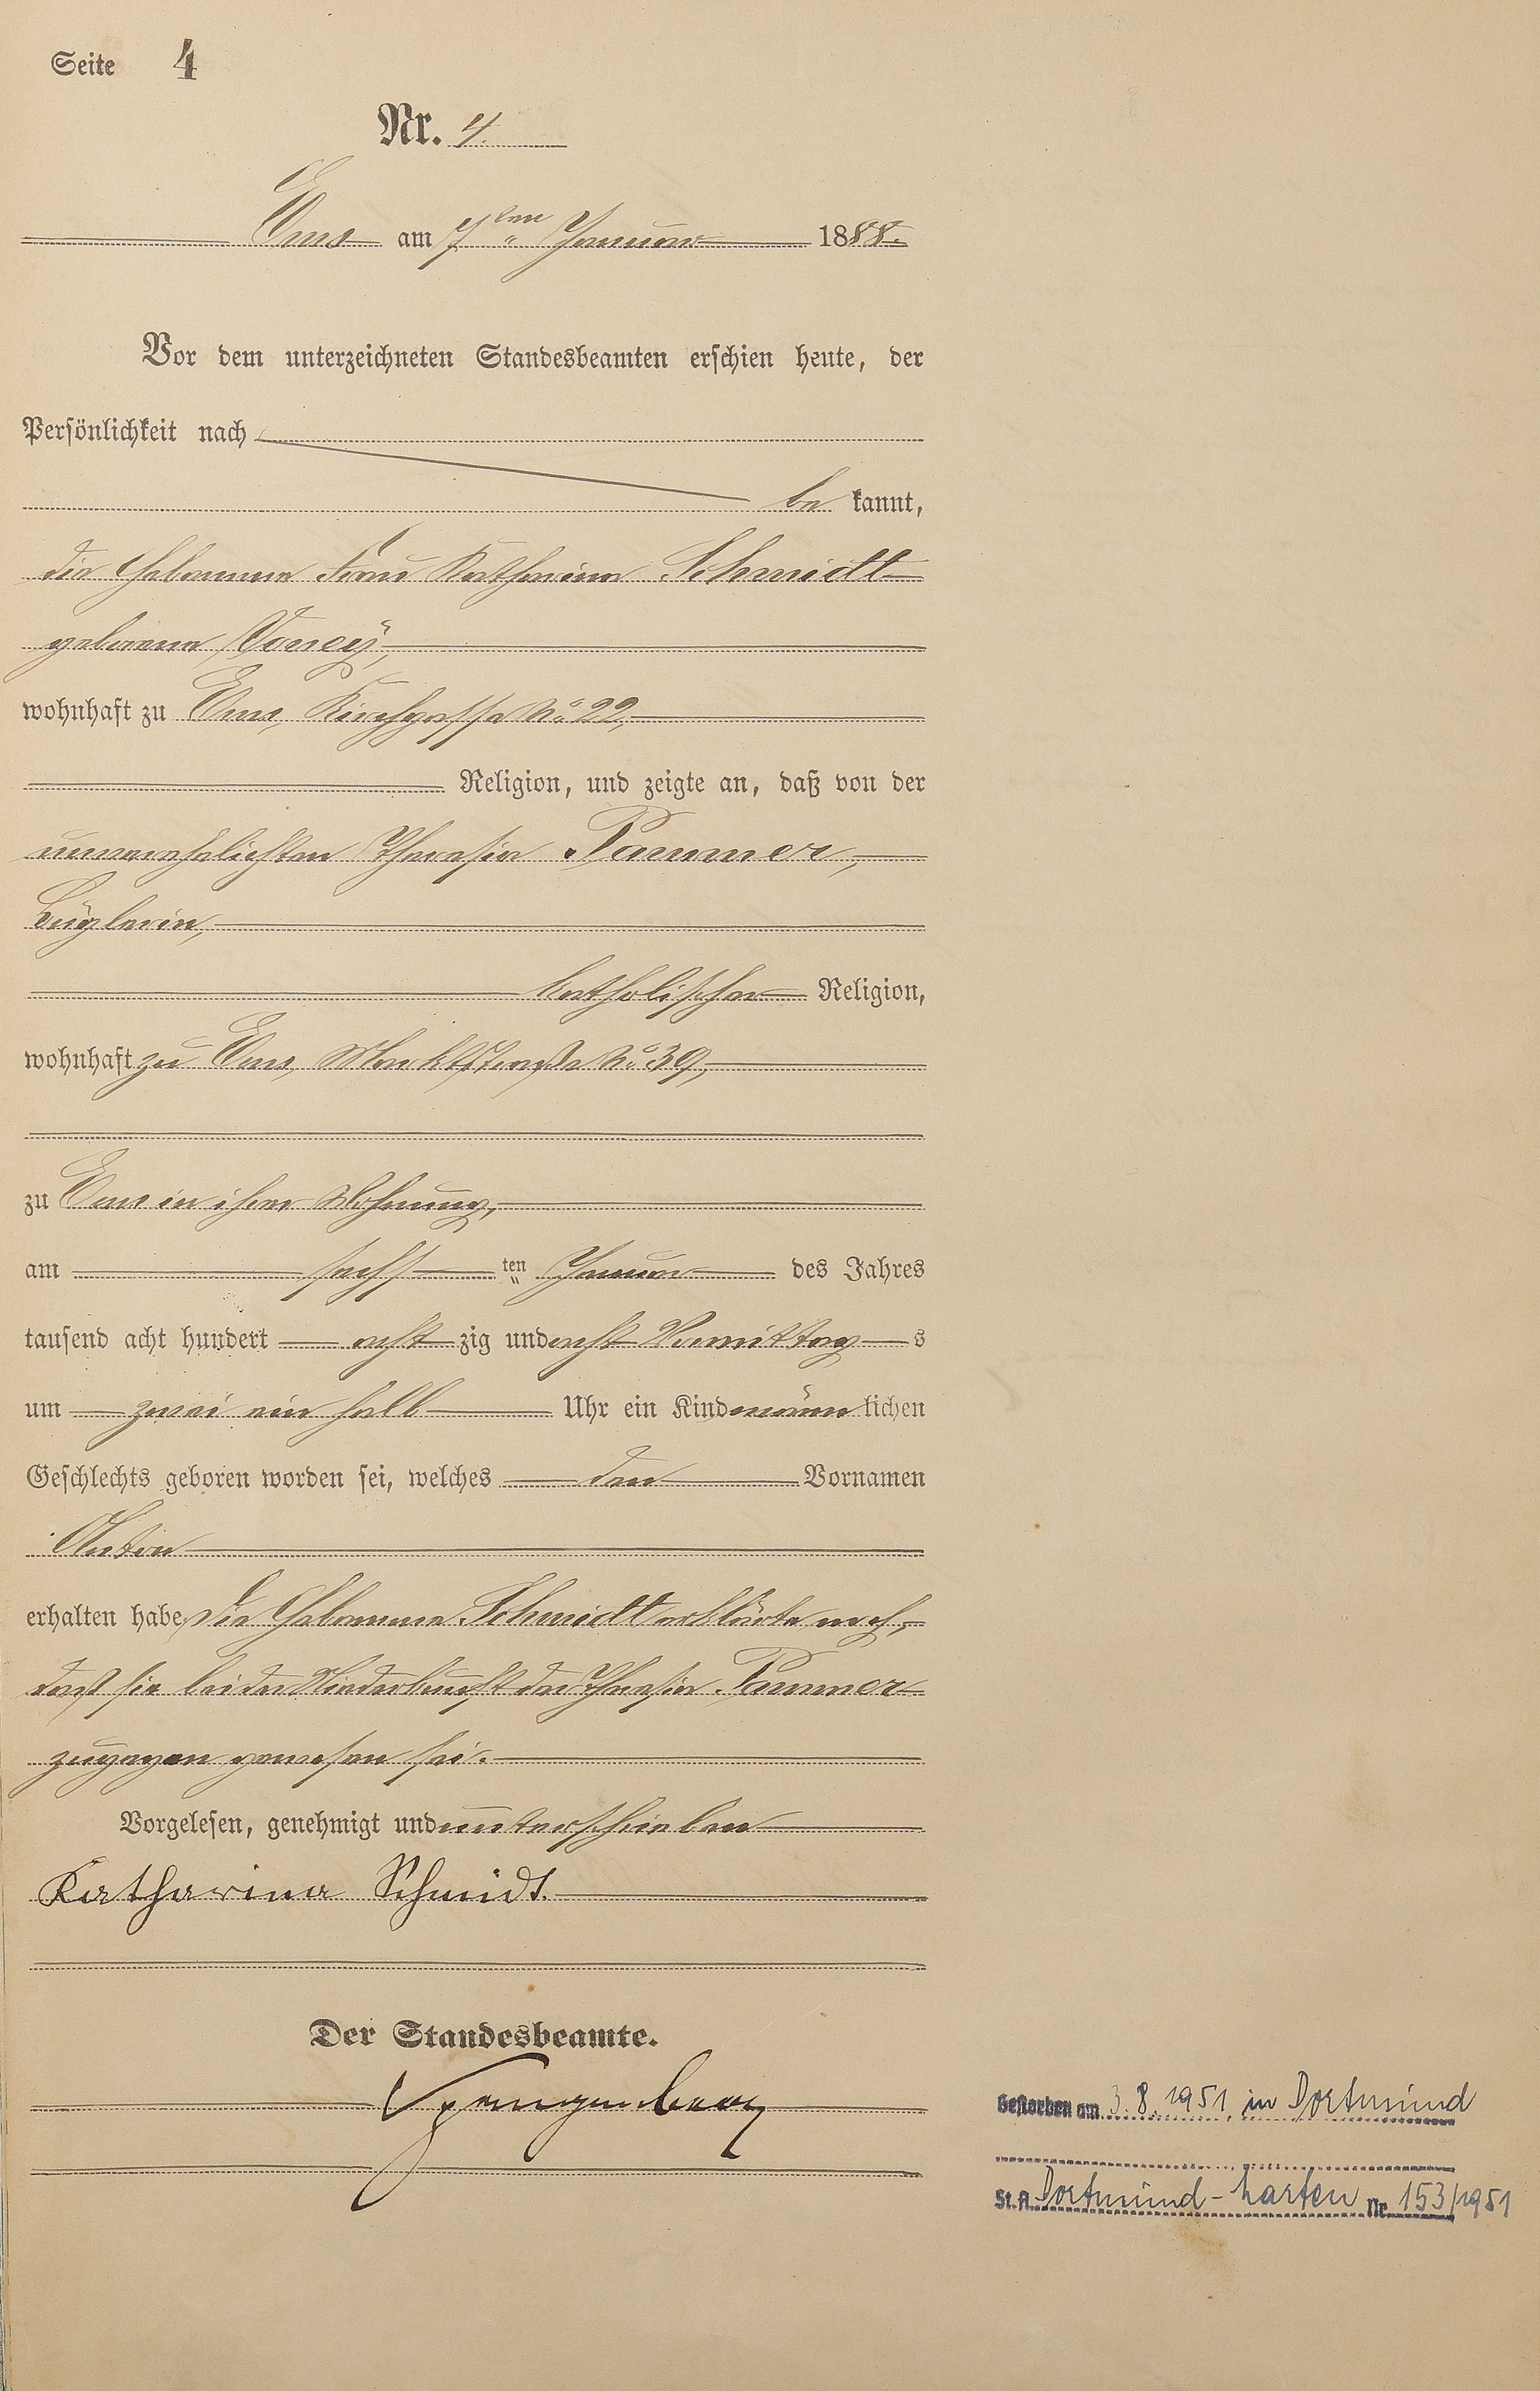 Seite 4
Nr. 4.
Ems am 7ten Januar 1888.
Vor dem unterzeichneten Standesbeamten erschien heute, der
Persönlichkeit nach
be kannt,
die Hebamme Frau Katharina Schmidt
geborene
wohnhaft zu Ems, Kirchgasse No 22,
Religion, und zeigte an, daß von der
unverehelichten Theresia Pammer,
Büglerin,
katholischer Religion,
wohnhaft zu Ems, Marktstraße No 39,
zu Ems in ihrer Wohnung,
am sechs ten Januar des Jahres
tausend acht hundert acht zig und acht Vormittag s
um zwei ein halb Uhr ein Kind männ lichen
Geschlechts geboren worden sei, welches den Vornamen
Anton
erhalten habe. Die Hebamme Schmidt erklärte noch,
daß sie bei der Niederkunft der Theresia Pammer
zugegen gewesen sei.
Vorgelesen, genehmigt und unterschrieben
Katharina Schmidt.
Der Standesbeamte.
Spangenberg
Gestorben am 3.8.1951 in Dortmund
St.A. Dortmund-Marten Nr. 153/1951